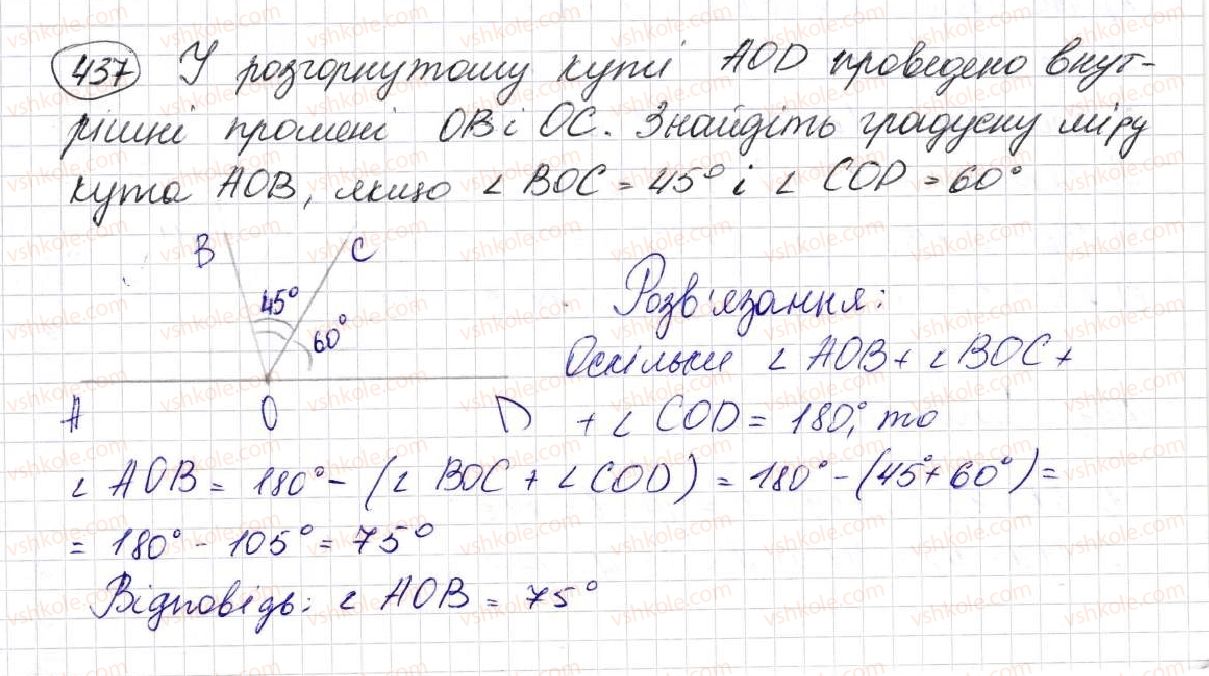 437 У розгорнутому куті AOD проведено внут-
рішні промені OB і OC. Знайдіть градусну міру
кута AOB, якщо ∠ BOC = 45° і ∠ COD = 60°
B C
45°
60°
A O D
Розв'язання:
Оскільки ∠ AOB + ∠ BOC +
+ ∠ COD = 180°, то
∠ AOB = 180° - (∠ BOC + ∠ COD) = 180° - (45° + 60°) =
= 180° - 105° = 75°
Відповідь: ∠ AOB = 75°
vshkole.com